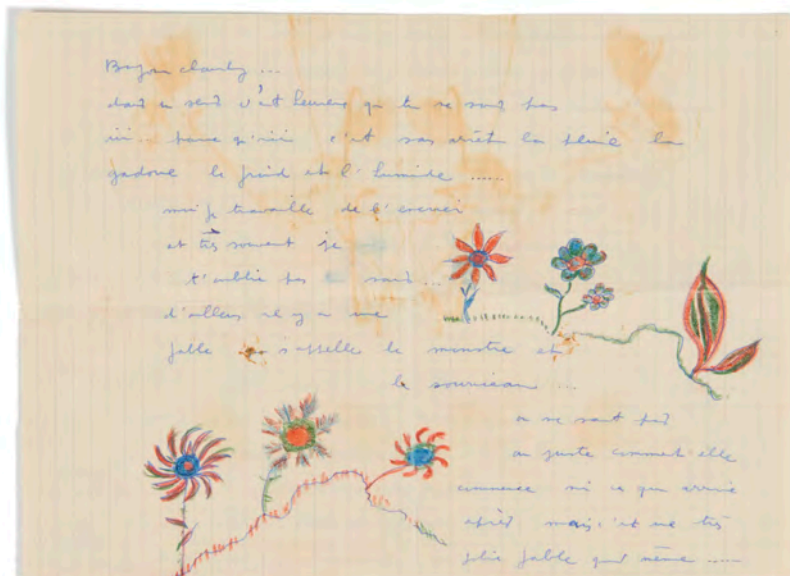 Bonjour chanly ...
dans un sens c'est heureux que tu ne sois pas
ici... parce qu'ici c'est sans arrêt la pluie la
gadoue le froid et l'humide ......
moi je travaille de l'encrier
et très souvent je
t'oublie pas sans...
d'ailleurs il y a une
fable qui s'appelle le monstre et
le souriceau ...
on ne sait pas
au juste comment elle
commence ni ce qui arrive
après mais c'est une très
jolie fable quand même .....